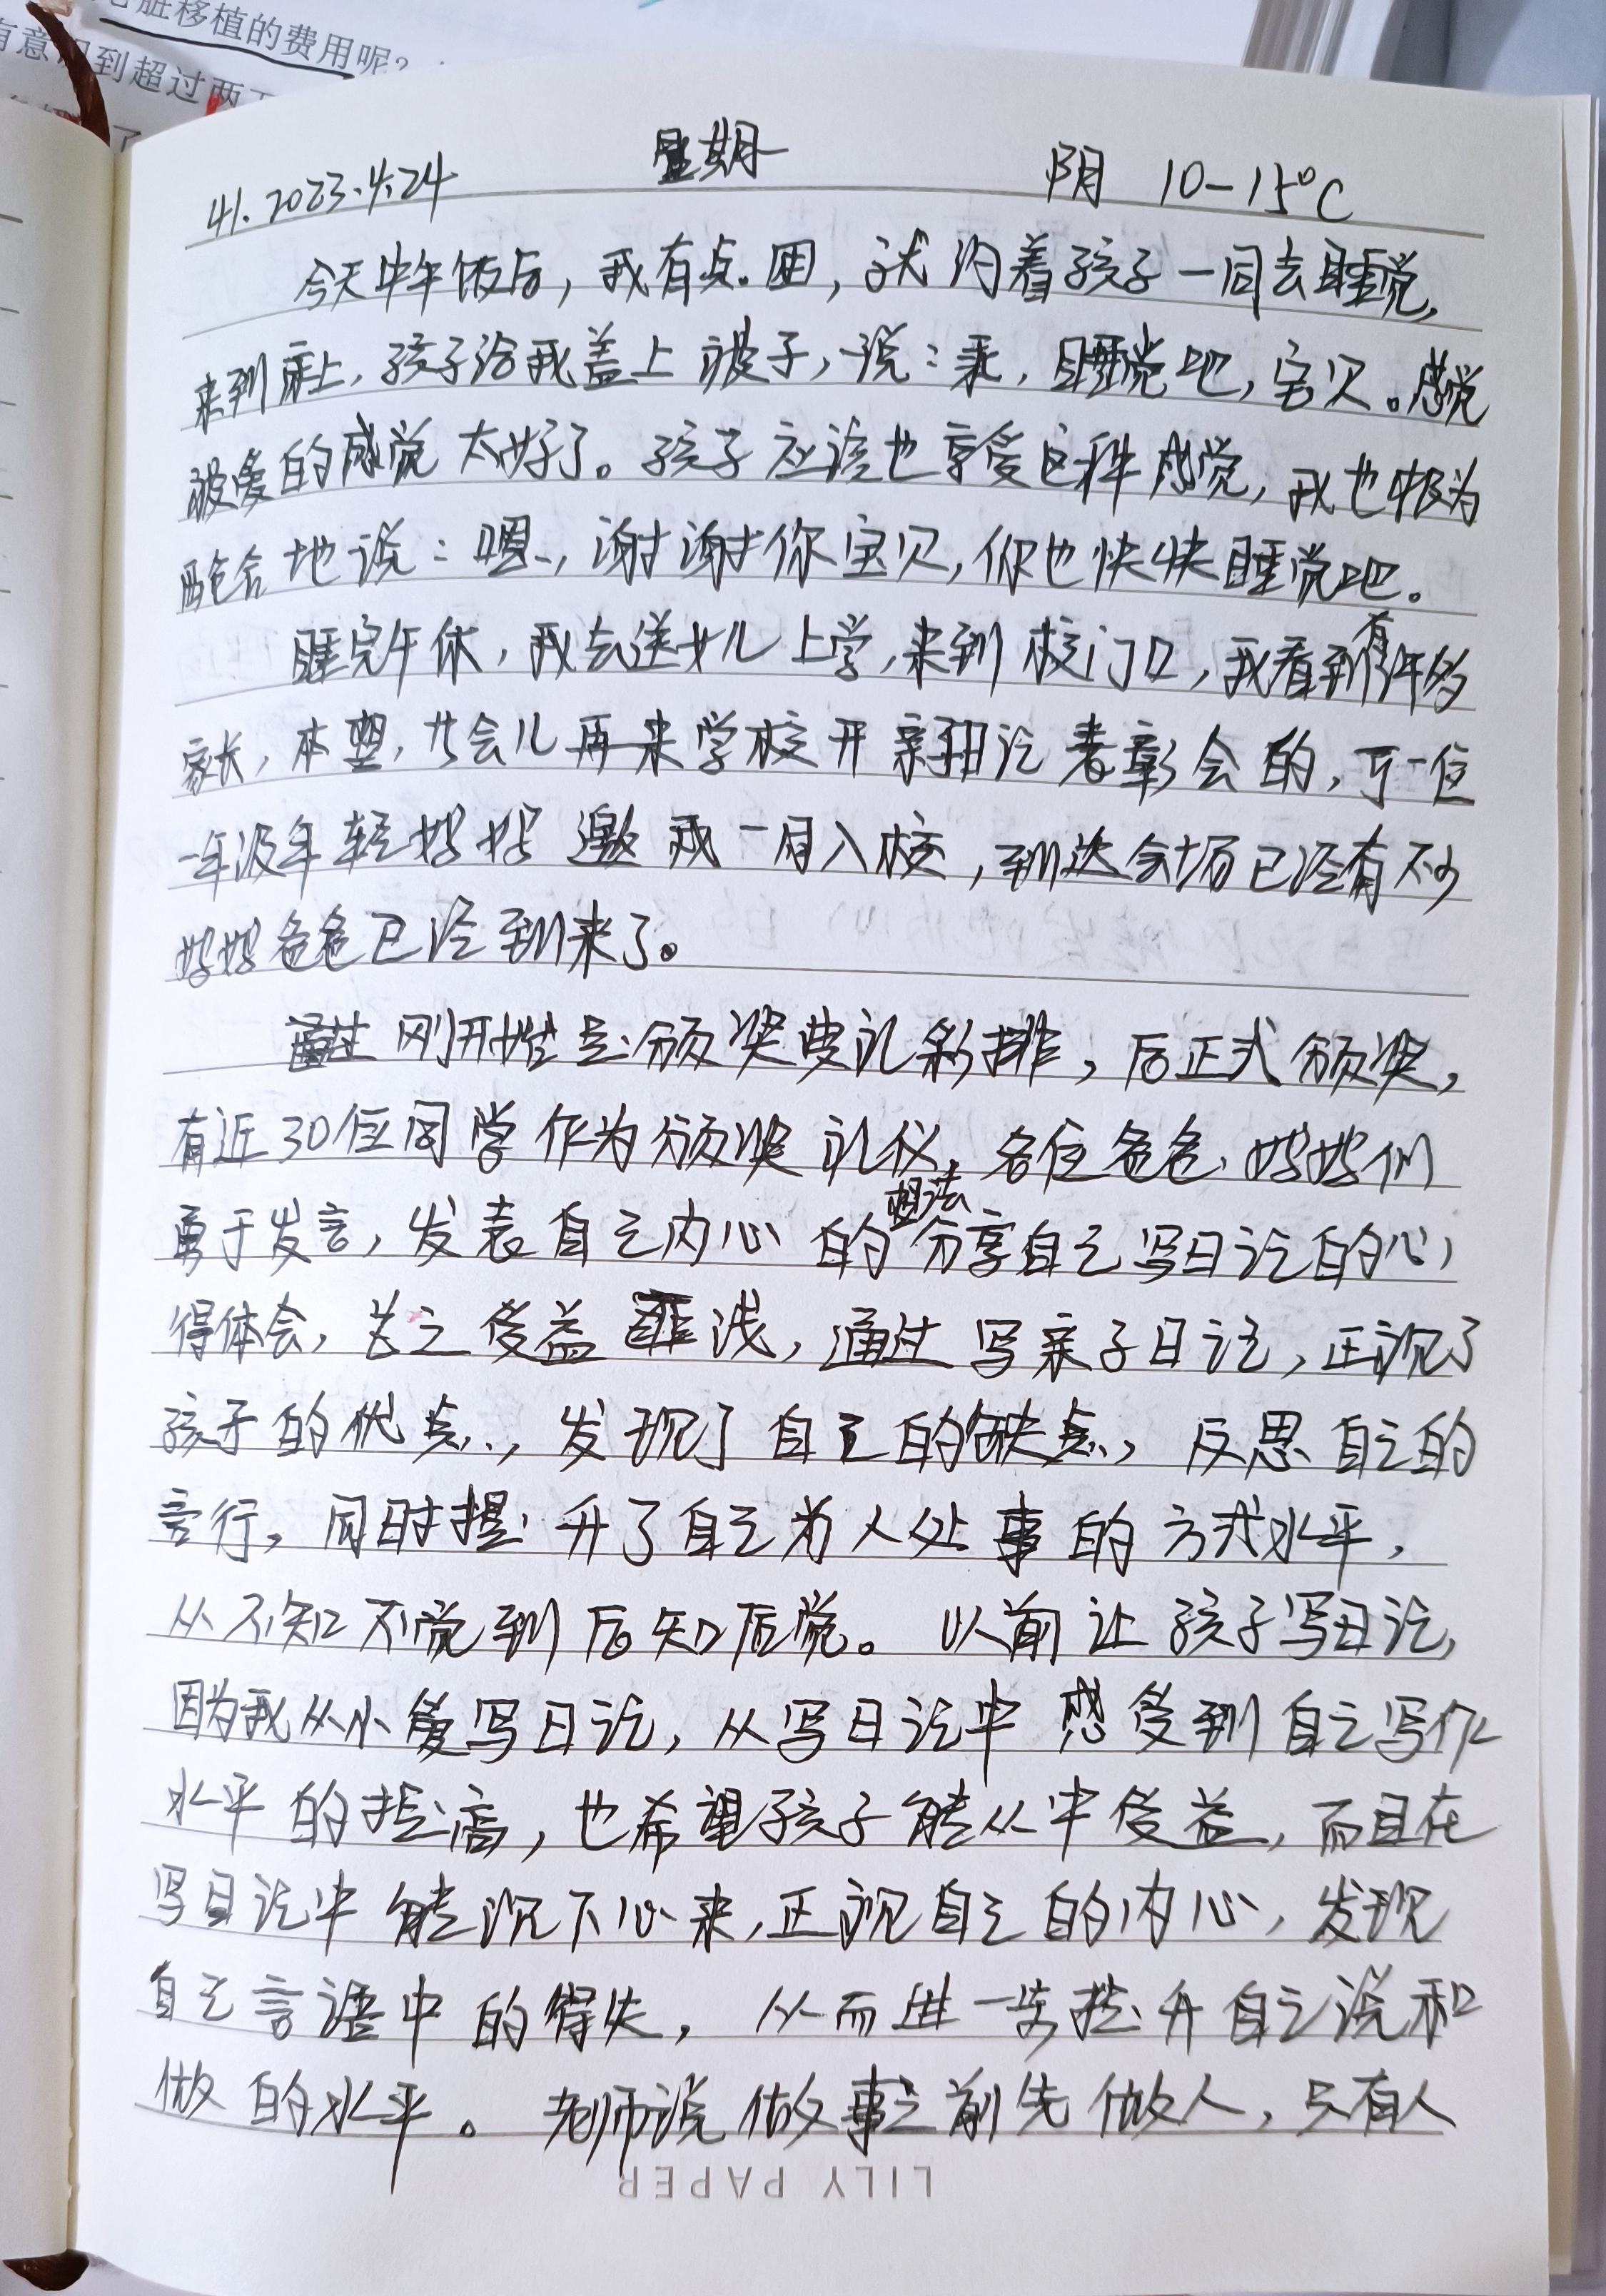 脏移植的费用呢?
有意识到超过两
41. 2023.4.24 星期一 阴 10-15℃
今天中午饭后,我有点困,就约着孩子一同去睡觉,
来到床上,孩子给我盖上被子,说:乖,睡觉吧,宝贝。感觉
被爱的感觉太好了。孩子应该也享受这种感觉,我也极为
配合地说:嗯,谢谢你宝贝,你也快快睡觉吧。
睡完午休,我去送女儿上学,来到校门口,我看到有许多
家长,本想,
会儿再来学校开亲子日记表彰会的,可一位
一年级年轻妈妈邀我一同入校,到达会场已经有不少
妈妈爸爸已经到来了。
刚开始是颁奖典礼彩排,后正式颁奖,
有近30位同学作为颁奖礼仪,各位爸爸、妈妈们
勇于发言,发表自己内心的想法分享自己写日记的心
得体会,总之受益匪浅,通过写亲子日记,正视了
孩子的优点,发现了自己的缺点,反思自己的
言行,同时提升了自己为人处事的方式水平,
从不知不觉到后知后觉。以前让孩子写日记,
因为我从小爱写日记,从写日记中感受到自己写作
水平的提高,也希望孩子能从中受益,而且在
写日记中能沉下心来,正视自己的内心,发现
自己言语中的得失,从而进一步提升自己说和
做的水平。老师说做事之前先做人,只有人
LILY PAPER